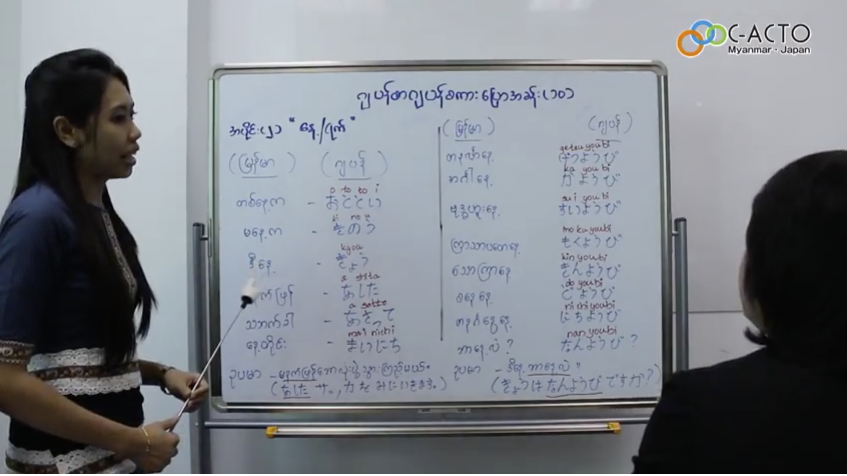 C-ACTO
Myanmar・Japan
ဂျပန်စာဂျပန်စကားပြောအခန်း(၁၀)
အပိုင်း(၂) "နေ့/ရက်"
(မြန်မာ) (ဂျပန်)
o to to i
တစ်နေ့က - おととい
ki no u
မနေ့က - きのう
kyou
ဒီနေ့ - きょう
a shita
- あした
a satte
သဘက်ခါ - あさって
mai nichi
နေ့တိုင်း - まいにち
ဥပမာ - မနက်ဖြန်ဘောလုံးပွဲသွားကြည့်မယ်။
(မြန်မာ) (ဂျပန်)
getsu youbi
တနင်္လာနေ့ げつようび
ka youbi
အင်္ဂါနေ့ かようび
sui youbi
ဗုဒ္ဓဟူးနေ့ すいようび
moku youbi
ကြာသာပတေးနေ့ もくようび
kin youbi
သောကြာနေ့ きんようび
do youbi
စနေနေ့ どようび
nichi youbi
တနင်္ဂနွေနေ့ にちようび
nan youbi
ဘာနေ့လဲ? なんようび?
ဥပမာ - ဒီနေ့ဘာနေ့လဲ။
(きょうはなんようびですか?)